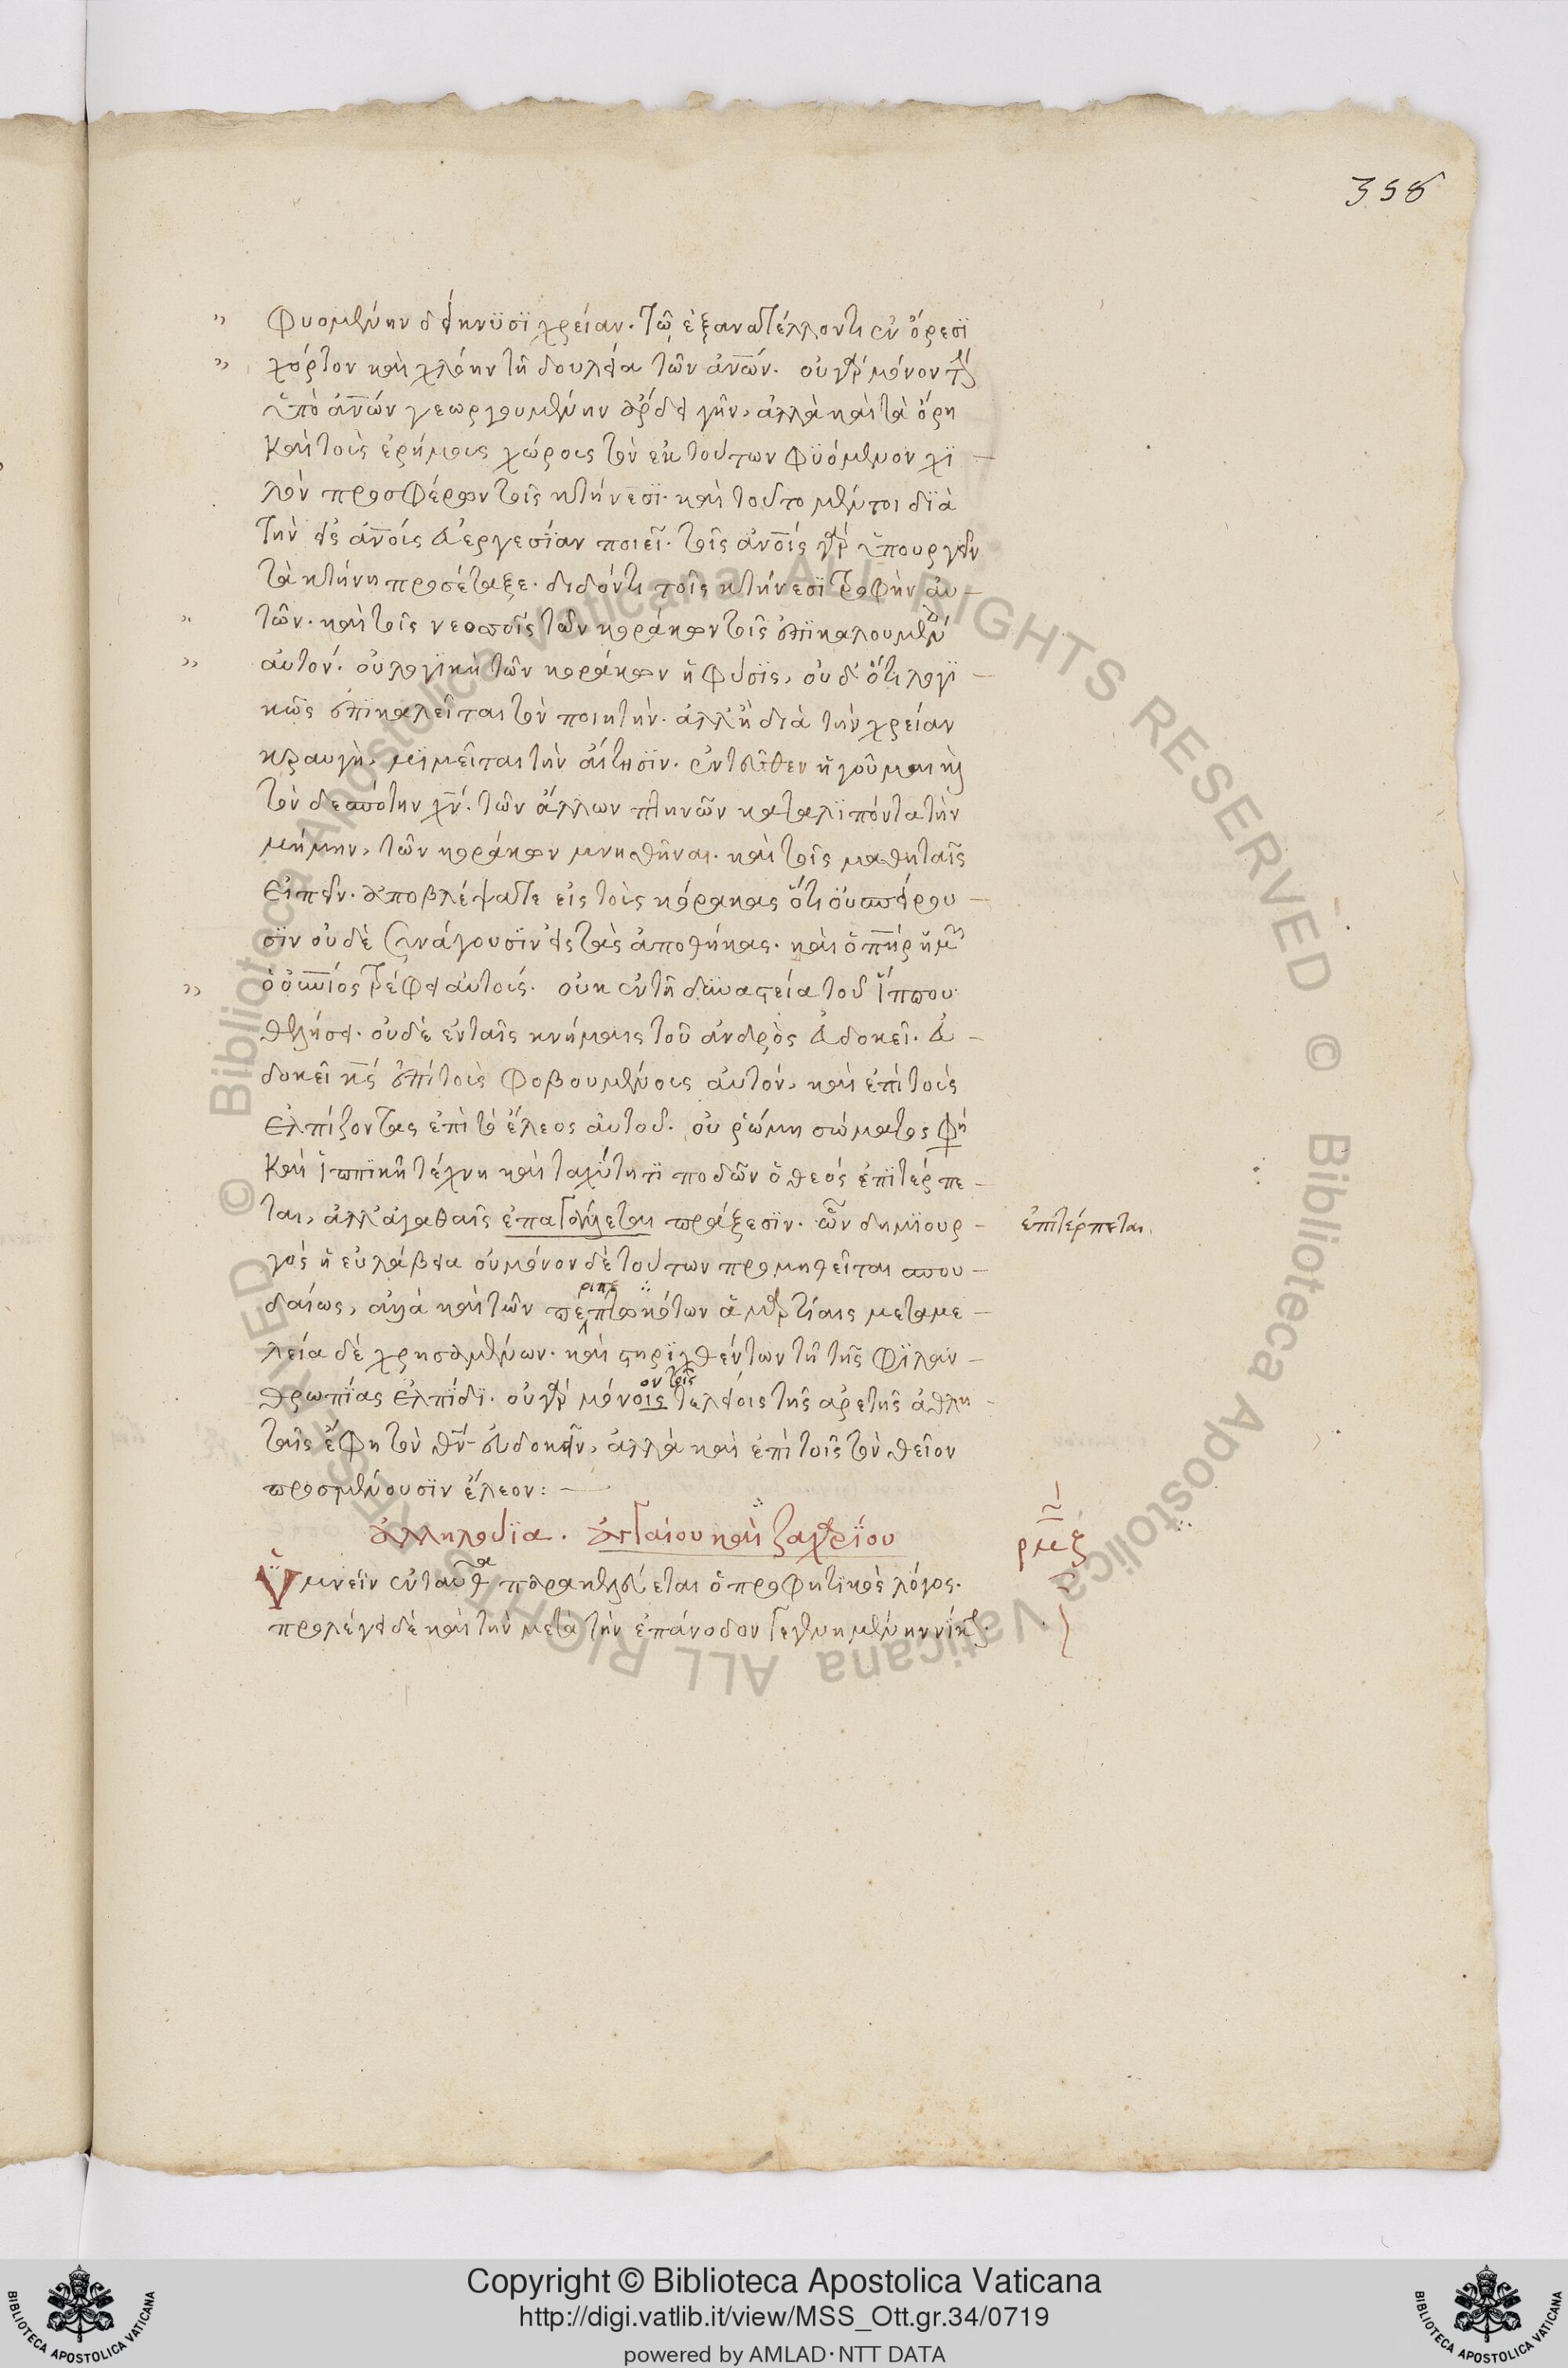 358
" φυομένην δείκνυσϊ χρείαν. τῶ ἐξανατέλλοντι ἐν ὄρεσϊ
" χόρτον καὶ χλόην τῆ δουλεία τῶν ἀν̅ων. οὐ γὰρ μόνον τὴν
ὑπὸ ἀν̅ων γεωργουμένην ἄρδει γῆν, ἀλλὰ καὶ τὰ ὄρη
καὶ τοὺς ἐρήμους χώρους τὸν ἐκ τούτων φϋόμενον χϊ
λὸν προσφέρων τοῖς κτήνεσϊ. καὶ τοῦτο μέντοι δϊὰ
τὴν εἰς ἀν̅οις εὐεργεσϊαν ποιεῖ. τοῖς ἀν̅οις γὰρ ὑπουργεῖν
τὰ κτήνη προσέταξε. διδόντι τοῖς κτήνεσϊ τροφὴν αὐ
" τῶν. καὶ τοῖς νεοσσοῖς τῶν κοράκων τοῖς ἐπϊκαλουμένοις
" αὐτόν. οὐ λογϊκὴ τῶν κοράκων ἡ φύσϊς, οὐδ' ὅτι λογϊ
κῶς ἐπϊκαλεῖται τὸν ποιητήν. ἀλλ' ἡ διὰ τὴν χρείαν
κραυγὴ, μϊμεῖται τὴν αἴτησϊν. ἐντεῦθεν ἡγοῦμαι καὶ
τὸν δεσπότην χ̅ν. τῶν ἄλλων πτηνῶν καταλϊπόντα τὴν
μνήμην, τῶν κοράκων μνησθῆναι. καὶ τοῖς μαθηταῖς
εἰπεῖν. ἀποβλέψατε εἰς τοὺς κόρακας ὅτι οὐ σπείρου
σϊν οὐδὲ συνάγουσϊν εἰς τὰς ἀποθήκας. καὶ ὁ π̅ηρ ἡμῶν
" ὁ οὐ̅νιος τρέφει αὐτούς. οὐκ ἐν τῆ δυναστεία τοῦ ἵππου
θελήσει. οὐδὲ ἐν ταῖς κνήμαις τοῦ ἀνδρὸς εὐδοκεῖ. εὐ
δοκεῖ κ̅ς ἐπὶ τοὺς φοβουμένους αὐτόν, καὶ ἐπὶ τοὺς
ἐλπίζοντας ἐπὶ τὸ ἔλεος αὐτοῦ. οὐ ῥώμη σώματος φη
καὶ ἱππϊκῆ τέχνη καὶ ταχύτητϊ ποδῶν ὁ θεός ἐπϊτέρπε
ται, ἀλλ' ἀγαθαῖς ἐπαγάλλεται πράξεσϊν. ὧν δημϊουρ
ἐπιτέρπεται.
γὸς ἡ εὐλάβεια οὐ μόνον δὲ τούτων προμηθεῖται σπου
δαίως, ἀλλὰ καὶ τῶν περιπεπτωκότων ἁμαρτίαις μεταμε
λεία δὲ χρησαμένων. καὶ στηρϊχθέντων τῆ τῆς φϊλαν
θρωπίας ἐλπίδϊ. οὐ γὰρ μόνοις ον τοῖς τελείοις τῆς ἀρετῆς ἀθλη
ταῖς ἔφη τὸν θ̅ν εὐδοκεῖν, ἀλλὰ καὶ ἐπὶ τοῖς τὸν θεῖον
προσμένουσϊν ἔλεον:
ἀλληλούϊα. ἀγγαίου καὶ ζαχαρίου
ρμζ
Ὑμνεῖν ἐνταῦθα παρακελεύεται ὁ προφητϊκὸς λόγος.
προλέγει δὲ καὶ τὴν μετὰ τὴν ἐπάνοδον γεγενημένην νίκην.
Copyright © Biblioteca Apostolica Vaticana
http://digi.vatlib.it/view/MSS_Ott.gr.34/0719
powered by AMLAD·NTT DATA